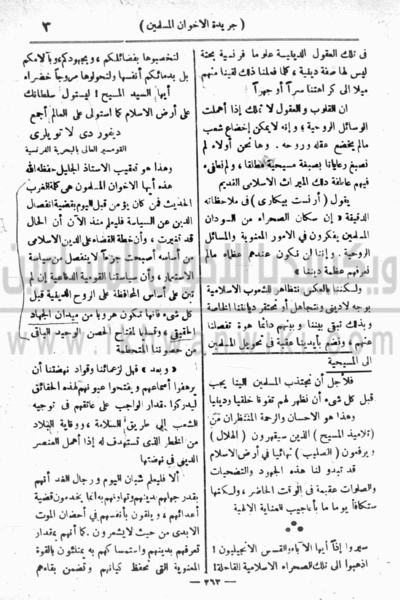 ٣
( جريدة الاخوان المسلمين )
فى تلك العقول الدينيـة علوما فرنسية بحتة
ليس لها صفة دينية ، كما فعلنا ذلك لقينا منهم
ميلا الى كراهتنا سراً أو جهراً
ان القلوب والعقول لا تملك إذا أهملت
الوسائل الروحية ، وإنه لا يمكن إخضاع شعب
مالم يخضع عقله وروحه . وها نحن أولاء لم
نصبغ رعايانا بصبغة مسيحية مطلقا ، ولم نعلن
فيهم عاطفة ذلك الميراث الاسلامى القديم
يقول ( أرنست بيكارى ) فى ملاحظاته
الدقيقة « إن سكان الصحراء من السودان
المسلمين يفكرون في الامور المعنوية والمسائل
الروحية . وإننا لن نكون عندهم عظاء مالم
نعرفهم عظمة ديننا »
ولكننا بالعكس نتظاهر للشعوب الاسلامية
بوجه لادينى ونتجاهل أو نحتقر ديانتنا الخاصة
وبذلك تبقى بيننا وبينهم دائما هوة تفصلنا
عنهم ، ونضع بأيدينا عقبة في تحويل المسلمين
الى المسيحية
فلأجل أن نجتذب المسلمين الينا يجب
قبل كل شىء أن نظهر لهم تفوقا خلقيا ودينيا
وهذا هو الاحسان والرحمة المنتظران من
( تلاميذ المسيح ) الذين سيقهرون ( الهلال )
ويرفعون ( الصليب ) نهائيا في أرض الاسلام
قد تبدو لنا هذه الجهود والتضحيات
والصلوات عقيمة فى الوقت الحاضر ، ولكنها
ستكافأ يوما ما بأعاجيب العناية الالهية
سيروا إذاً أيها الآباء والقسس الانجيليون !
اذهبوا الى تلك الصحراء الاسلامية القاحلة !
لتخصبوها بفضائلكم ، وبجهودكم ، وبآلامكم
بل بدمائكم أنفسها ولتحولوها مروجاً خضراء
أيها السيد المسيح ! ليستول سلطانك
على أرض الاسلام كما استولى على العالم أجمع
ديغور دى لا تويلرى
القومسير العالى بالبحرية الفرنسية
وهذا هو تعقيب الاستاذ الجليل حفظه الله
هذه أيها الاخوان المسلمون هى كلمة الغرب
الحديث فمن كان يؤمن قبل اليوم بقضية انفصال
الدين عن السياسة فليعلم منذ الآن أن الحال
قد تغيرت ، وأن خطة القضاء على الدين الاسلامى
من أساسه أصبحت جزءاً لا ينفصل من سياسة
الاستعمار ، وأن سياستنا القومية الدفاعية إن لم
تبن على أساس المحافظة على الروح الدينية قبل
كل شىء فانها تكون هروبا من ميدان الجهاد
الحقيقى ، وتسليما لمفتاح الحصن الوحيد الباقى
من حصوننا المتحطمة
« وبعد » فهل لزعمائنا وقواد نهضتنا أن
يرهفوا أسماعهم ويفتحوا عيونهم لهذه الحقائق
ليدركوا مقدار الواجب على عاتقهم فى توجيه
الشعب إلى طريق السلامة ، ووقاية البلاد
من الخطر الذى تستهدف له إذا أهمل العنصر
الدينى فى نهضتها
ألا فليعلم شبان اليوم ورجال الغد أنهم
بقدر جهلهم بدينهم وتهاونهم به انما يخدمون قضية
أعدائهم ، ويلقون بأنفسهم في أحضان الموت
الابدى من حيث لا يشعرون . كما أنهم بمقدار
تعرفهم بدينهم واستمساكهم به يمتلئون بالقوة
المعنوية التى تحفظ كيانهم وتضمن بقاءهم
— ٣٦٣ —